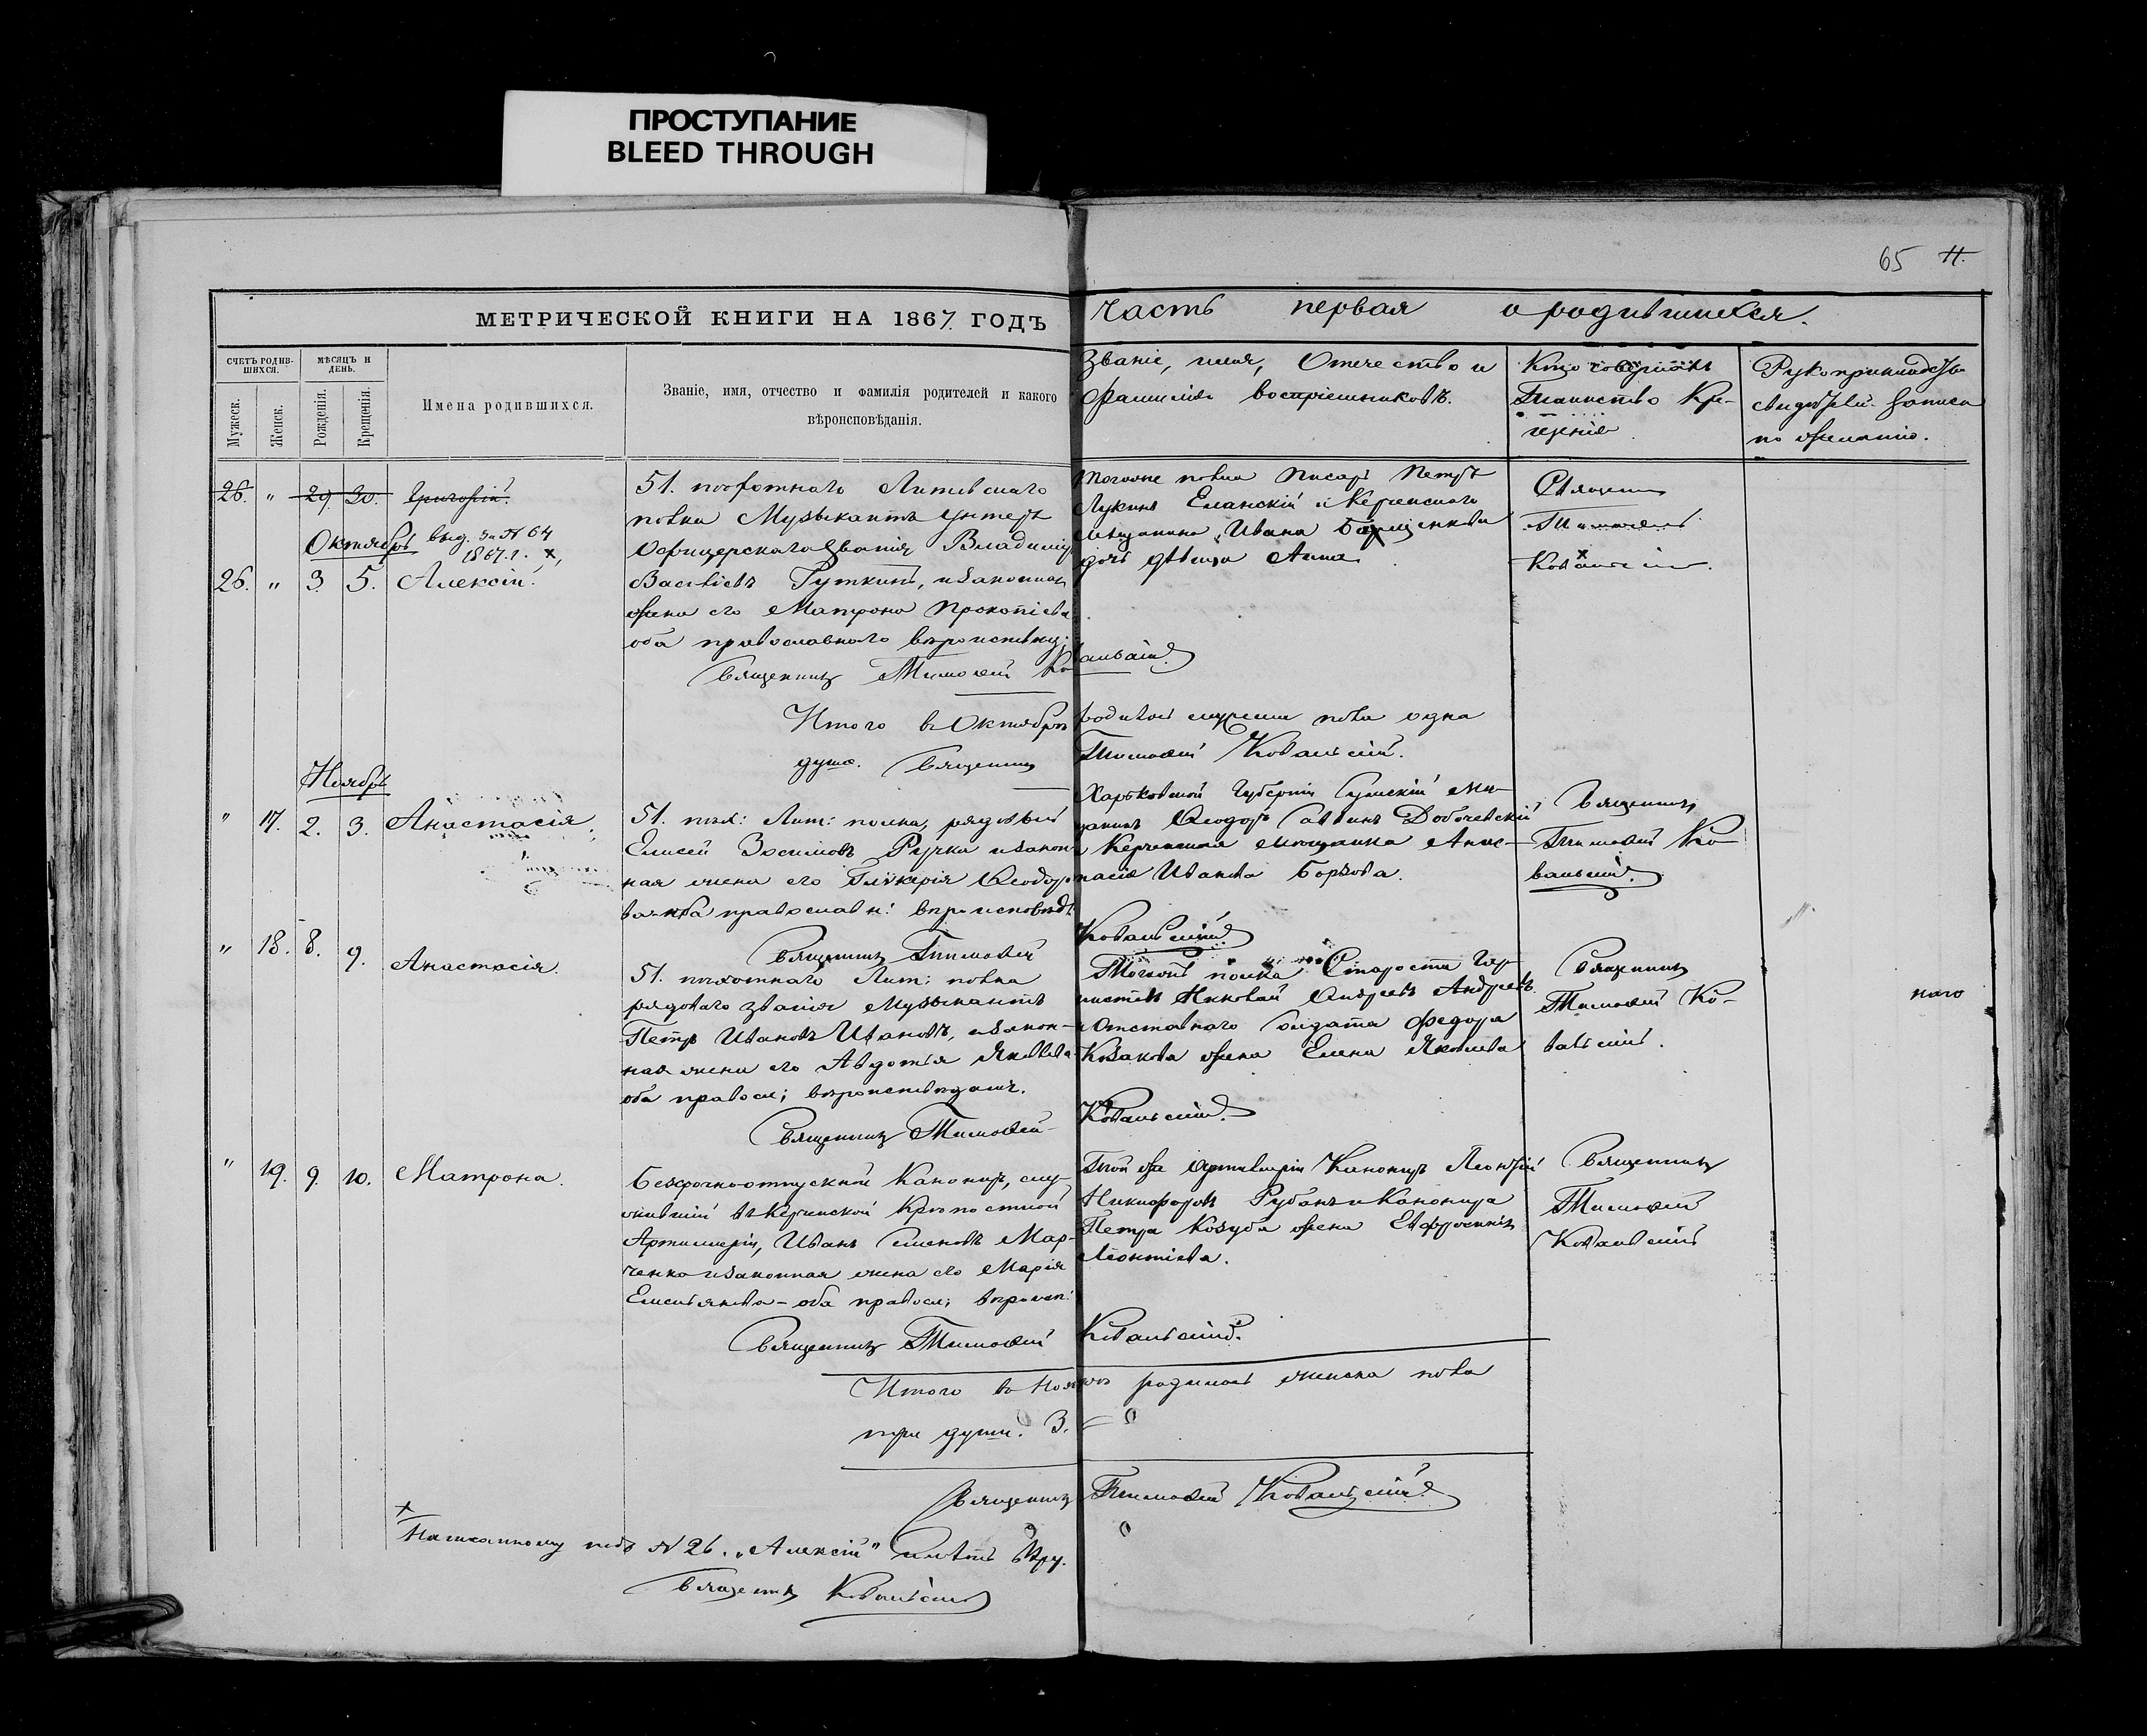 ПРОСТУПАНИЕ
BLEED THROUGH
65
МЕТРИЧЕСКОЙ КНИГИ НА 1867 ГОДЪ
часть первая о родившихся.
СЧЕТЪ РОДИВ-
ШИХСЯ.
Мужеск.
Женск.
МѢСЯЦЪ И
ДЕНЬ.
Рожденія.
Крещенія.
Имена родившихся.
Званіе, имя, отчество и фамилія родителей и какого
вѣроисповѣданія.
Званіе, имя, Отчество и
фамилія воспріемниковъ.
Кто совершалъ
Таинство Кре-
щенія
Рукоприкладство
свидѣтелей записи
по желанію.
26. " 29. 30. Григорій.
Октябрь выд. за № 64
1867 г. x
26. " 3. 5. Алексій.
51. пѣхотнаго Литовскаго
полка Музыкантъ унтеръ
Офицерскаго званія Владиміръ
Васильевъ Гуткинъ, и законная
жена его Матрона Прокопіева
оба православнаго вѣроисповѣд;
тогоже полка Писарь Петръ
Лукинъ Еланскій и Керченскаго
мѣщанина Ивана
дочь дѣвица Анна
Священникъ
Тимоѳей
Ковальскій
Священникъ Тимоѳей Ковальскій
Итого въ Октябрѣ родилось мужеска пола одна
душа. Священникъ Тимоѳей Ковальскій.
Ноябрь
" 17. 2. 3. Анастасія.
51. пѣх: Лит: полка, рядовый
Елисей Зосимовъ Ручка и закон-
ная жена его Гликерія Ѳеодоро-
ва оба православн: вѣроисповѣд.
Харьковской Губерніи Сумскій мѣ-
щанинъ Ѳеодоръ Саввинъ
и Керченская мѣщанка Анас-
тасія Иванова Борзова.
Священникъ
Тимоѳей Ко-
вальскій.
Священникъ Тимоѳей Ковальскій
" 18. 8. 9. Анастасія.
51. пѣхотнаго Лит: полка
рядоваго званія Музыкантъ
Петръ Ивановъ Ивановъ, и закон-
ная жена его Авдотія Яковлева
оба правосл; вѣроисповѣданія.
Тогожъ полка Староста Гор-
нистовъ Николай Андреевъ Андреевъ
и Отставнаго Солдата Федора
Козакова жена Елена Яковлева
Священникъ
Тимоѳей Ко-
вальскій.
наго
Священникъ Тимоѳей Ковальскій.
" 19. 9. 10. Матрона.
Безсрочно-отпускной Канониръ, слу-
жившій въ Керченской Крѣпостной
Артиллеріи, Иванъ Семеновъ Мар-
ченко и законная жена его Марія
Емельянова - оба правосл; вѣроисп:
Той же Артиллеріи Канониръ Леонтій
Никифоровъ Рубанъ и Канонира
Петра Козуба жена Евфросинія
Леонтіева.
Священникъ
Тимоѳей
Ковальскій
Священникъ Тимоѳей Ковальскій.
Итого въ Ноябрѣ родилось женска пола
три души. 3.
Священникъ Тимоѳей Ковальскій
x
Написанному подъ № 26. „Алексій" имѣть вѣру.
Священникъ Ковальскій